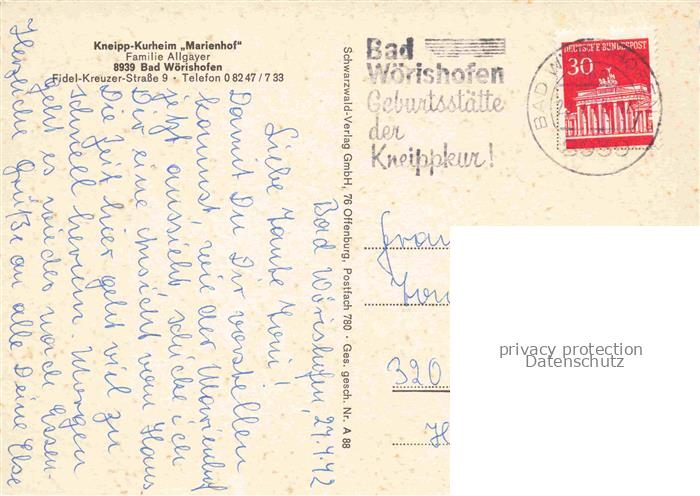 Kneipp-Kurheim „Marienhof"
Familie Allgäyer
8939 Bad Wörishofen
Fidel-Kreuzer-Straße 9 · Telefon 0 82 47 / 7 33
Bad Wörishofen, 29.4.72
Liebe Taube Toni!
Damit Du Dir vorstellen
kannst, wie der Marienhof
jetzt aussieht schicke ich
Dir eine Ansicht vom Haus
Die Zeit hier geht viel zu
schnell herum. Morgen
geht es wieder nach Essen.
Herzliche Grüße an alle Deine Else
Schwarzwald-Verlag GmbH, 76 Offenburg, Postfach 780 · Ges. gesch. Nr. A 88
Bad
Wörishofen
Geburtsstätte
der
Kneippkur!
DEUTSCHE BUNDESPOST
30
BAD
Frau
320
privacy protection
Datenschutz